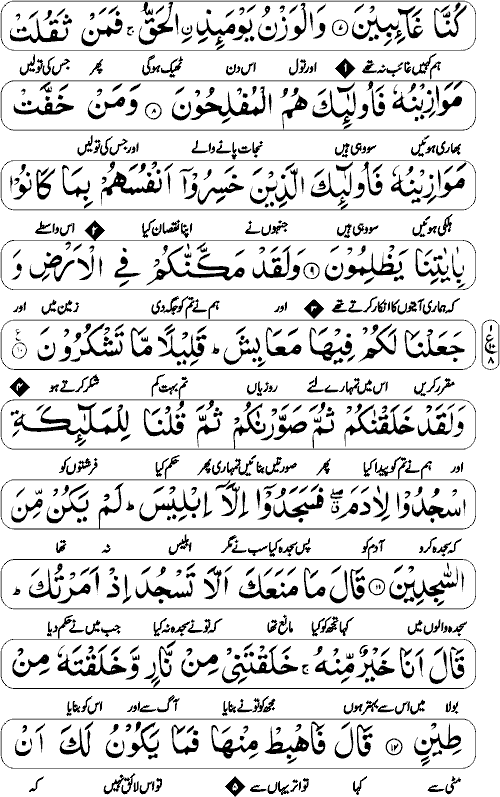 كُنَّا غَآئِبِيْنَ ﴿۷﴾ وَالْوَزْنُ يَوْمَئِذِ اِۨلْحَقُّ ۚ فَمَنْ ثَقُلَتْ
ہم کہیں غائب نہ تھے ۱ اور تول اس دن ٹھیک ہوگی پھر جس کی تولیں
مَوَازِيْنُهٗ فَاُولٰٓئِكَ هُمُ الْمُفْلِحُوْنَ ﴿۸﴾ وَمَنْ خَفَّتْ
بھاری ہوئیں سو وہی ہیں نجات پانے والے اور جس کی تولیں
مَوَازِيْنُهٗ فَاُولٰٓئِكَ الَّذِيْنَ خَسِرُوْٓا اَنْفُسَهُمْ بِمَا كَانُوْا
ہلکی ہوئیں سو وہی ہیں جنہوں نے اپنا نقصان کیا ۲ اس واسطے
بِاٰيٰتِنَا يَظْلِمُوْنَ ﴿۹﴾ وَلَقَدْ مَكَّنّٰكُمْ فِي الْاَرْضِ وَ
کہ ہماری آیتوں کا انکار کرتے تھے ۳ اور ہم نے تم کو جگہ دی زمین میں اور
جَعَلْنَا لَكُمْ فِيْهَا مَعَايِشَ ؕ قَلِيْلًا مَّا تَشْكُرُوْنَ ﴿۱۰﴾ ع
مقرر کریں اس میں تمہارے لئے روزیاں تم بہت کم شکر کرتے ہو ۴
وَلَقَدْ خَلَقْنٰكُمْ ثُمَّ صَوَّرْنٰكُمْ ثُمَّ قُلْنَا لِلْمَلٰٓئِكَةِ
اور ہم نے تم کو پیدا کیا پھر صورتیں بنائیں تمہاری پھر حکم کیا فرشتوں کو
اسْجُدُوْا لِاٰدَمَ ۖ فَسَجَدُوْٓا اِلَّآ اِبْلِيْسَ ؕ لَمْ يَكُنْ مِّنَ
کہ سجدہ کرو آدم کو پس سجدہ کیا سب نے مگر ابلیس نہ تھا
السّٰجِدِيْنَ ﴿۱۱﴾ قَالَ مَا مَنَعَكَ اَلَّا تَسْجُدَ اِذْ اَمَرْتُكَ ؕ
سجدہ والوں میں کہا تجھ کو کیا مانع تھا کہ تونے سجدہ نہ کیا جب میں نے حکم دیا
قَالَ اَنَا خَيْرٌ مِّنْهُ ۚ خَلَقْتَنِيْ مِنْ نَّارٍ وَّخَلَقْتَهٗ مِنْ
بولا میں اس سے بہتر ہوں مجھ کو تونے بنایا آگ سے اور اس کو بنایا
طِيْنٍ ﴿۱۲﴾ قَالَ فَاهْبِطْ مِنْهَا فَمَا يَكُوْنُ لَكَ اَنْ
مٹی سے کہا تو اتر یہاں سے ۵ تو اس لائق نہیں کہ